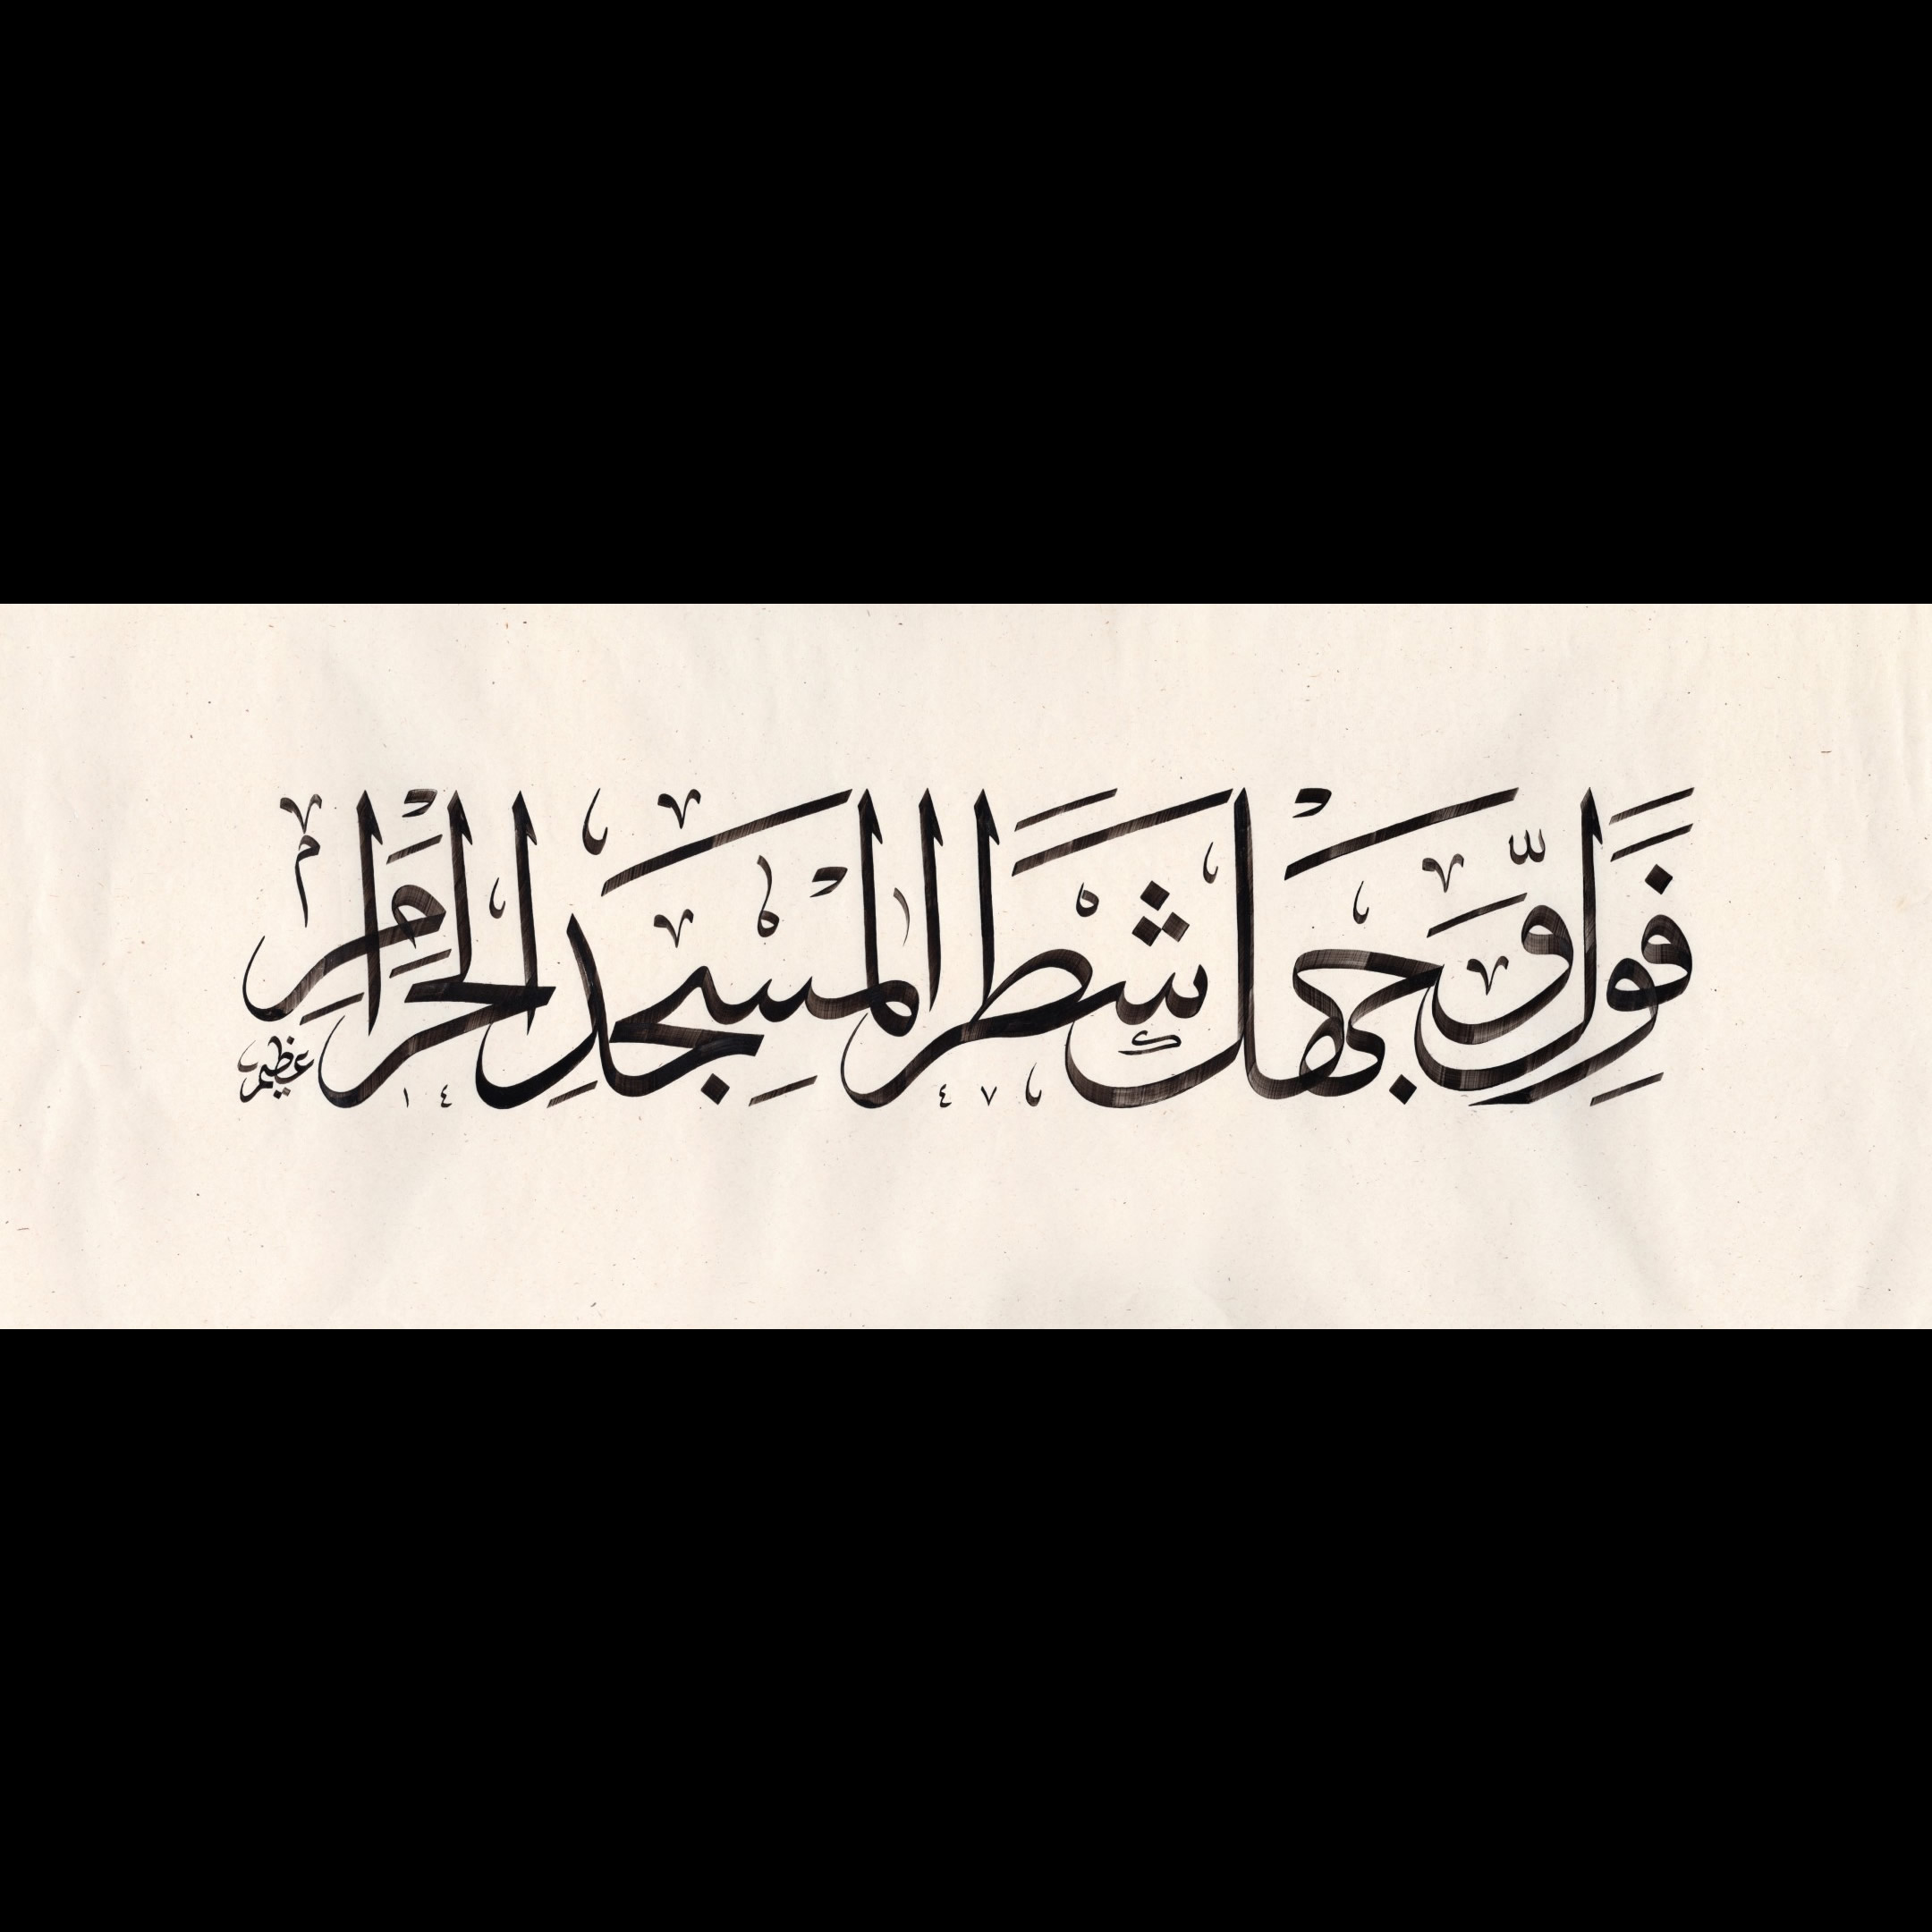 فَوَلِّ وَجْهَكَ شَطْرَ الْمَسْجِدِ الْحَرَامِ
عظيم ١٤٤٧